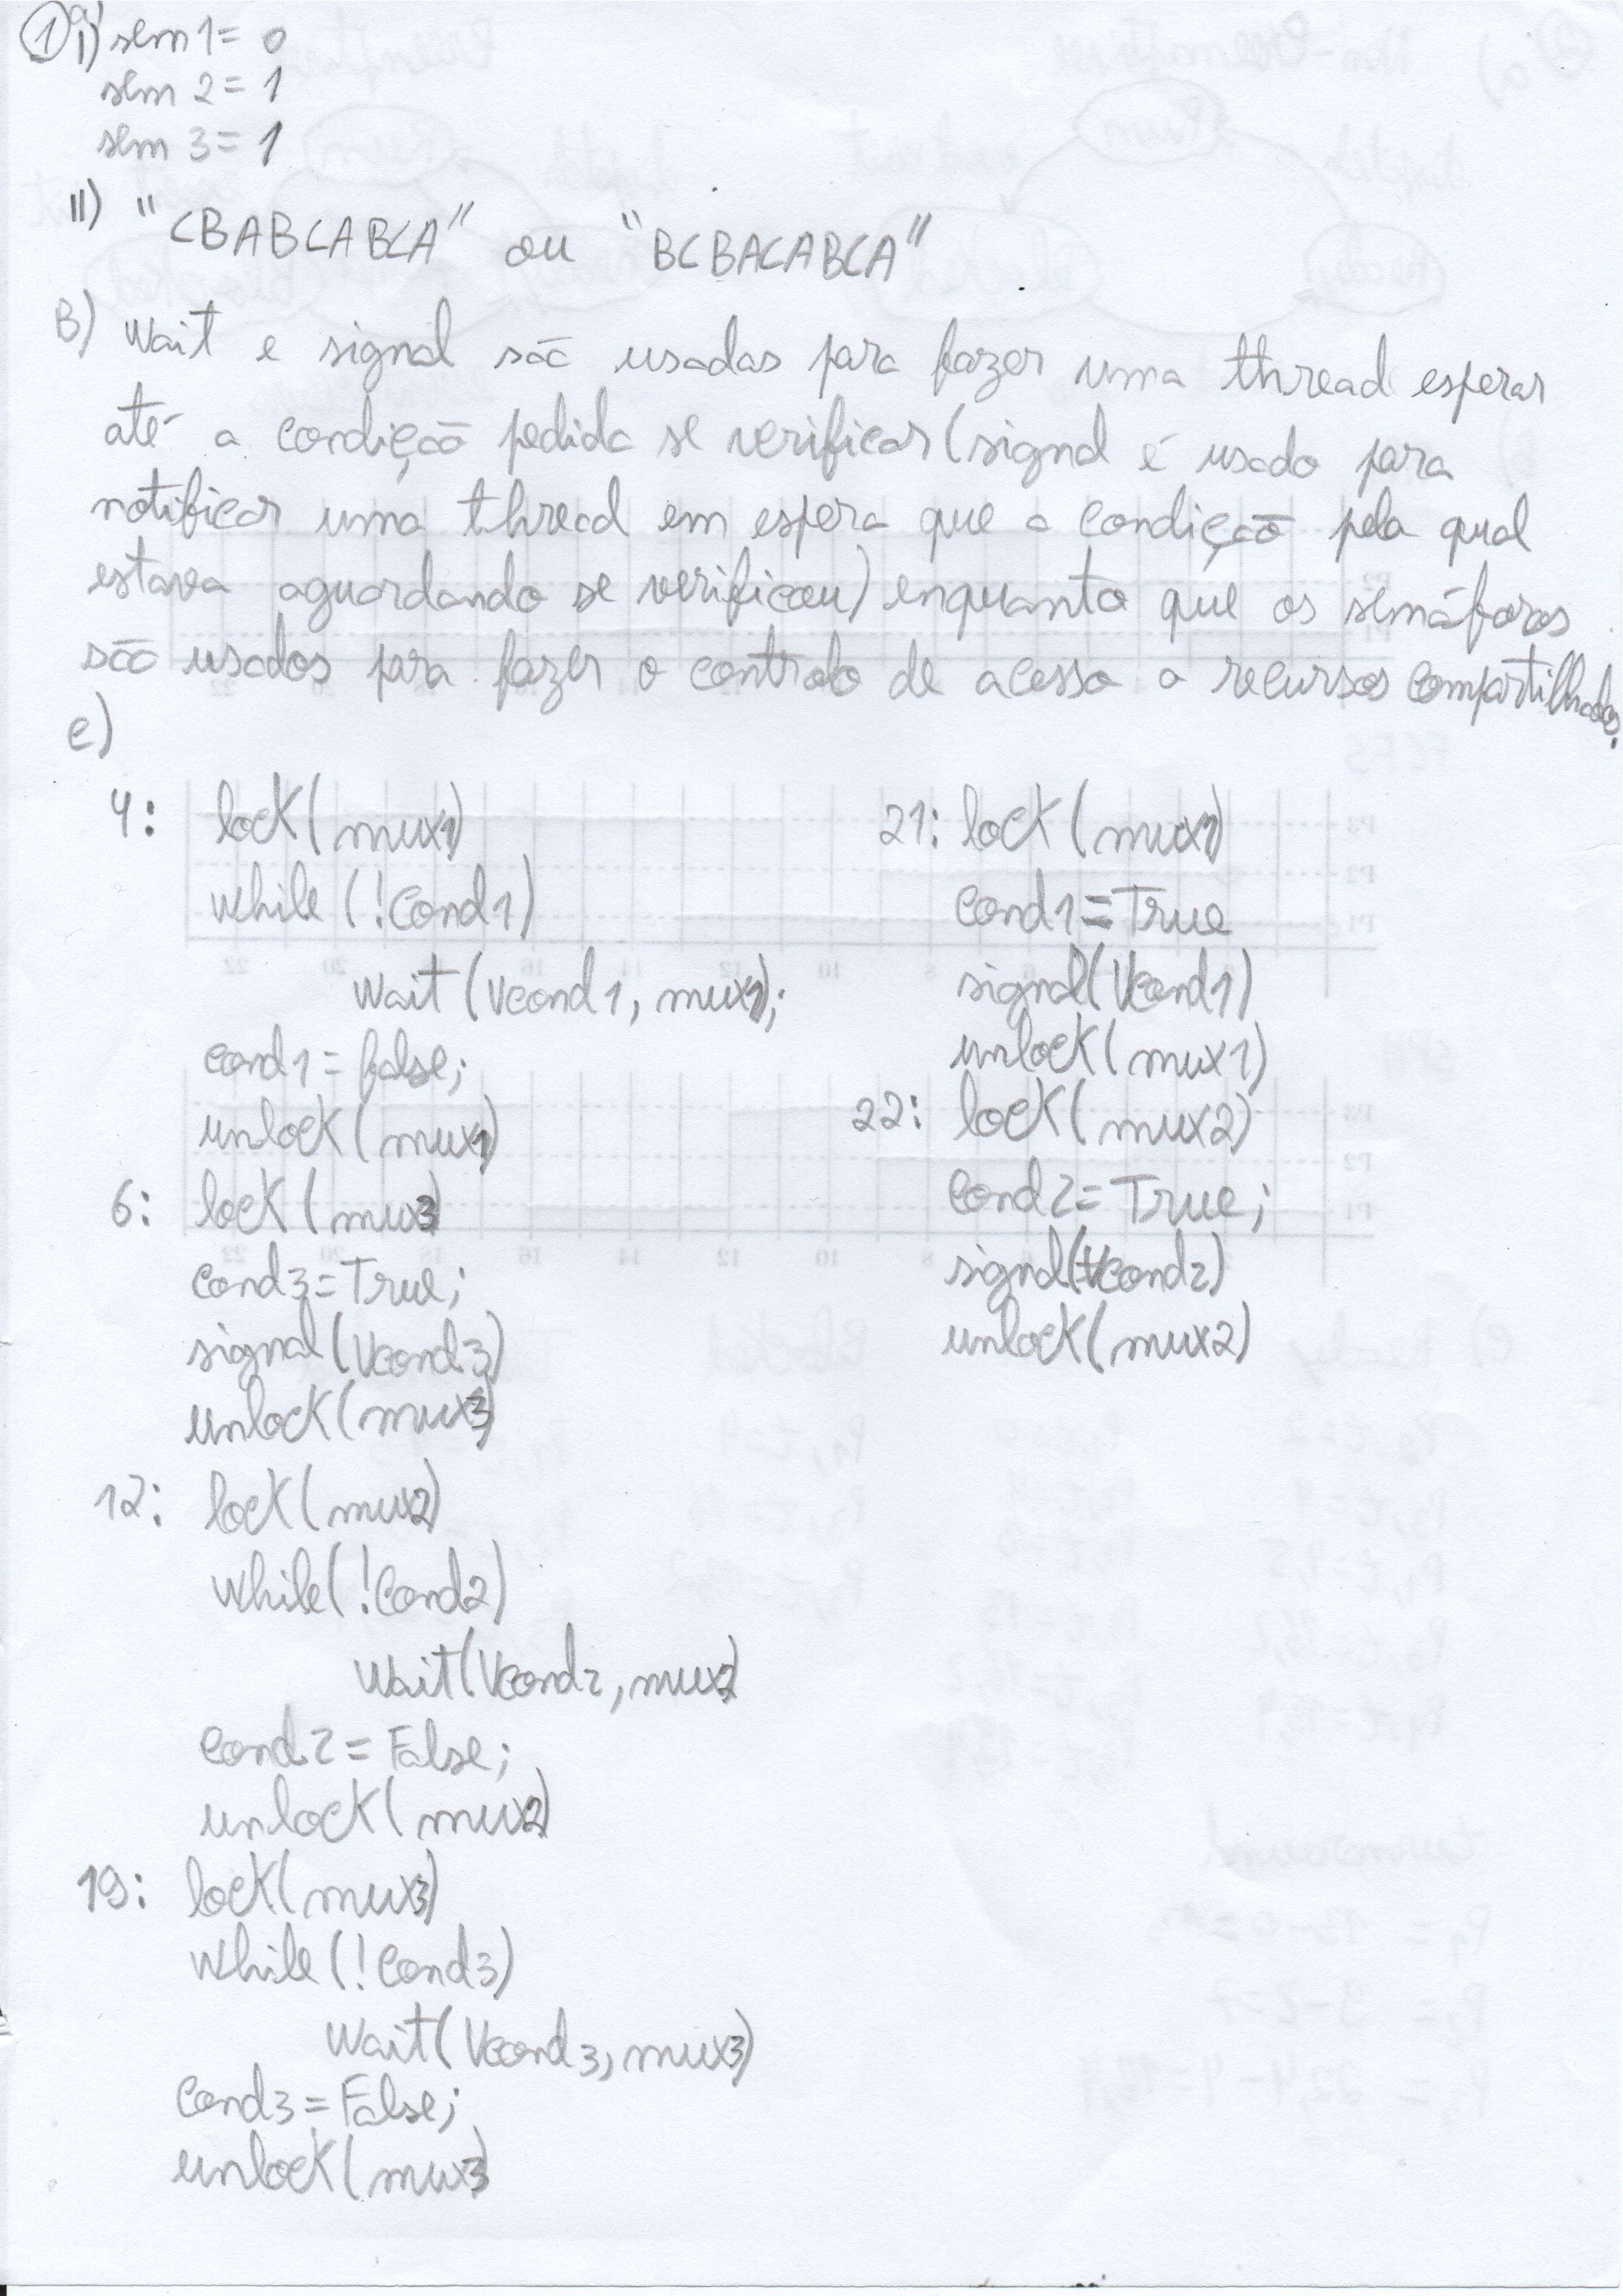 ① a) i) sem 1 = 0
sem 2 = 1
sem 3 = 1
II) "CBABCABCA" ou "BCBACABCA"
B) Wait e signal são usadas para fazer uma thread esperar
até a condição pedida se verificar (signal é usado para
notificar uma thread em espera que a condição pela qual
estava aguardando se verificou) enquanto que os semáforos
são usados para fazer o controlo de acesso a recursos compartilhados.
c)
4: lock(mux1)
while (!cond1)
wait(Vcond1, mux1);
cond1 = false;
unlock(mux1)
6: lock(mux3)
cond3 = True;
signal(Vcond3)
unlock(mux3)
12: lock(mux2)
while(!cond2)
wait(Vcond2, mux2
cond2 = False;
unlock(mux2)
19: lock(mux3)
while(!cond3)
wait(Vcond3, mux3)
cond3 = False;
unlock(mux3
21: lock(mux1)
cond1 = True
signal(Vcond1)
unlock(mux1)
22: lock(mux2)
cond2 = True;
signal(Vcond2)
unlock(mux2)